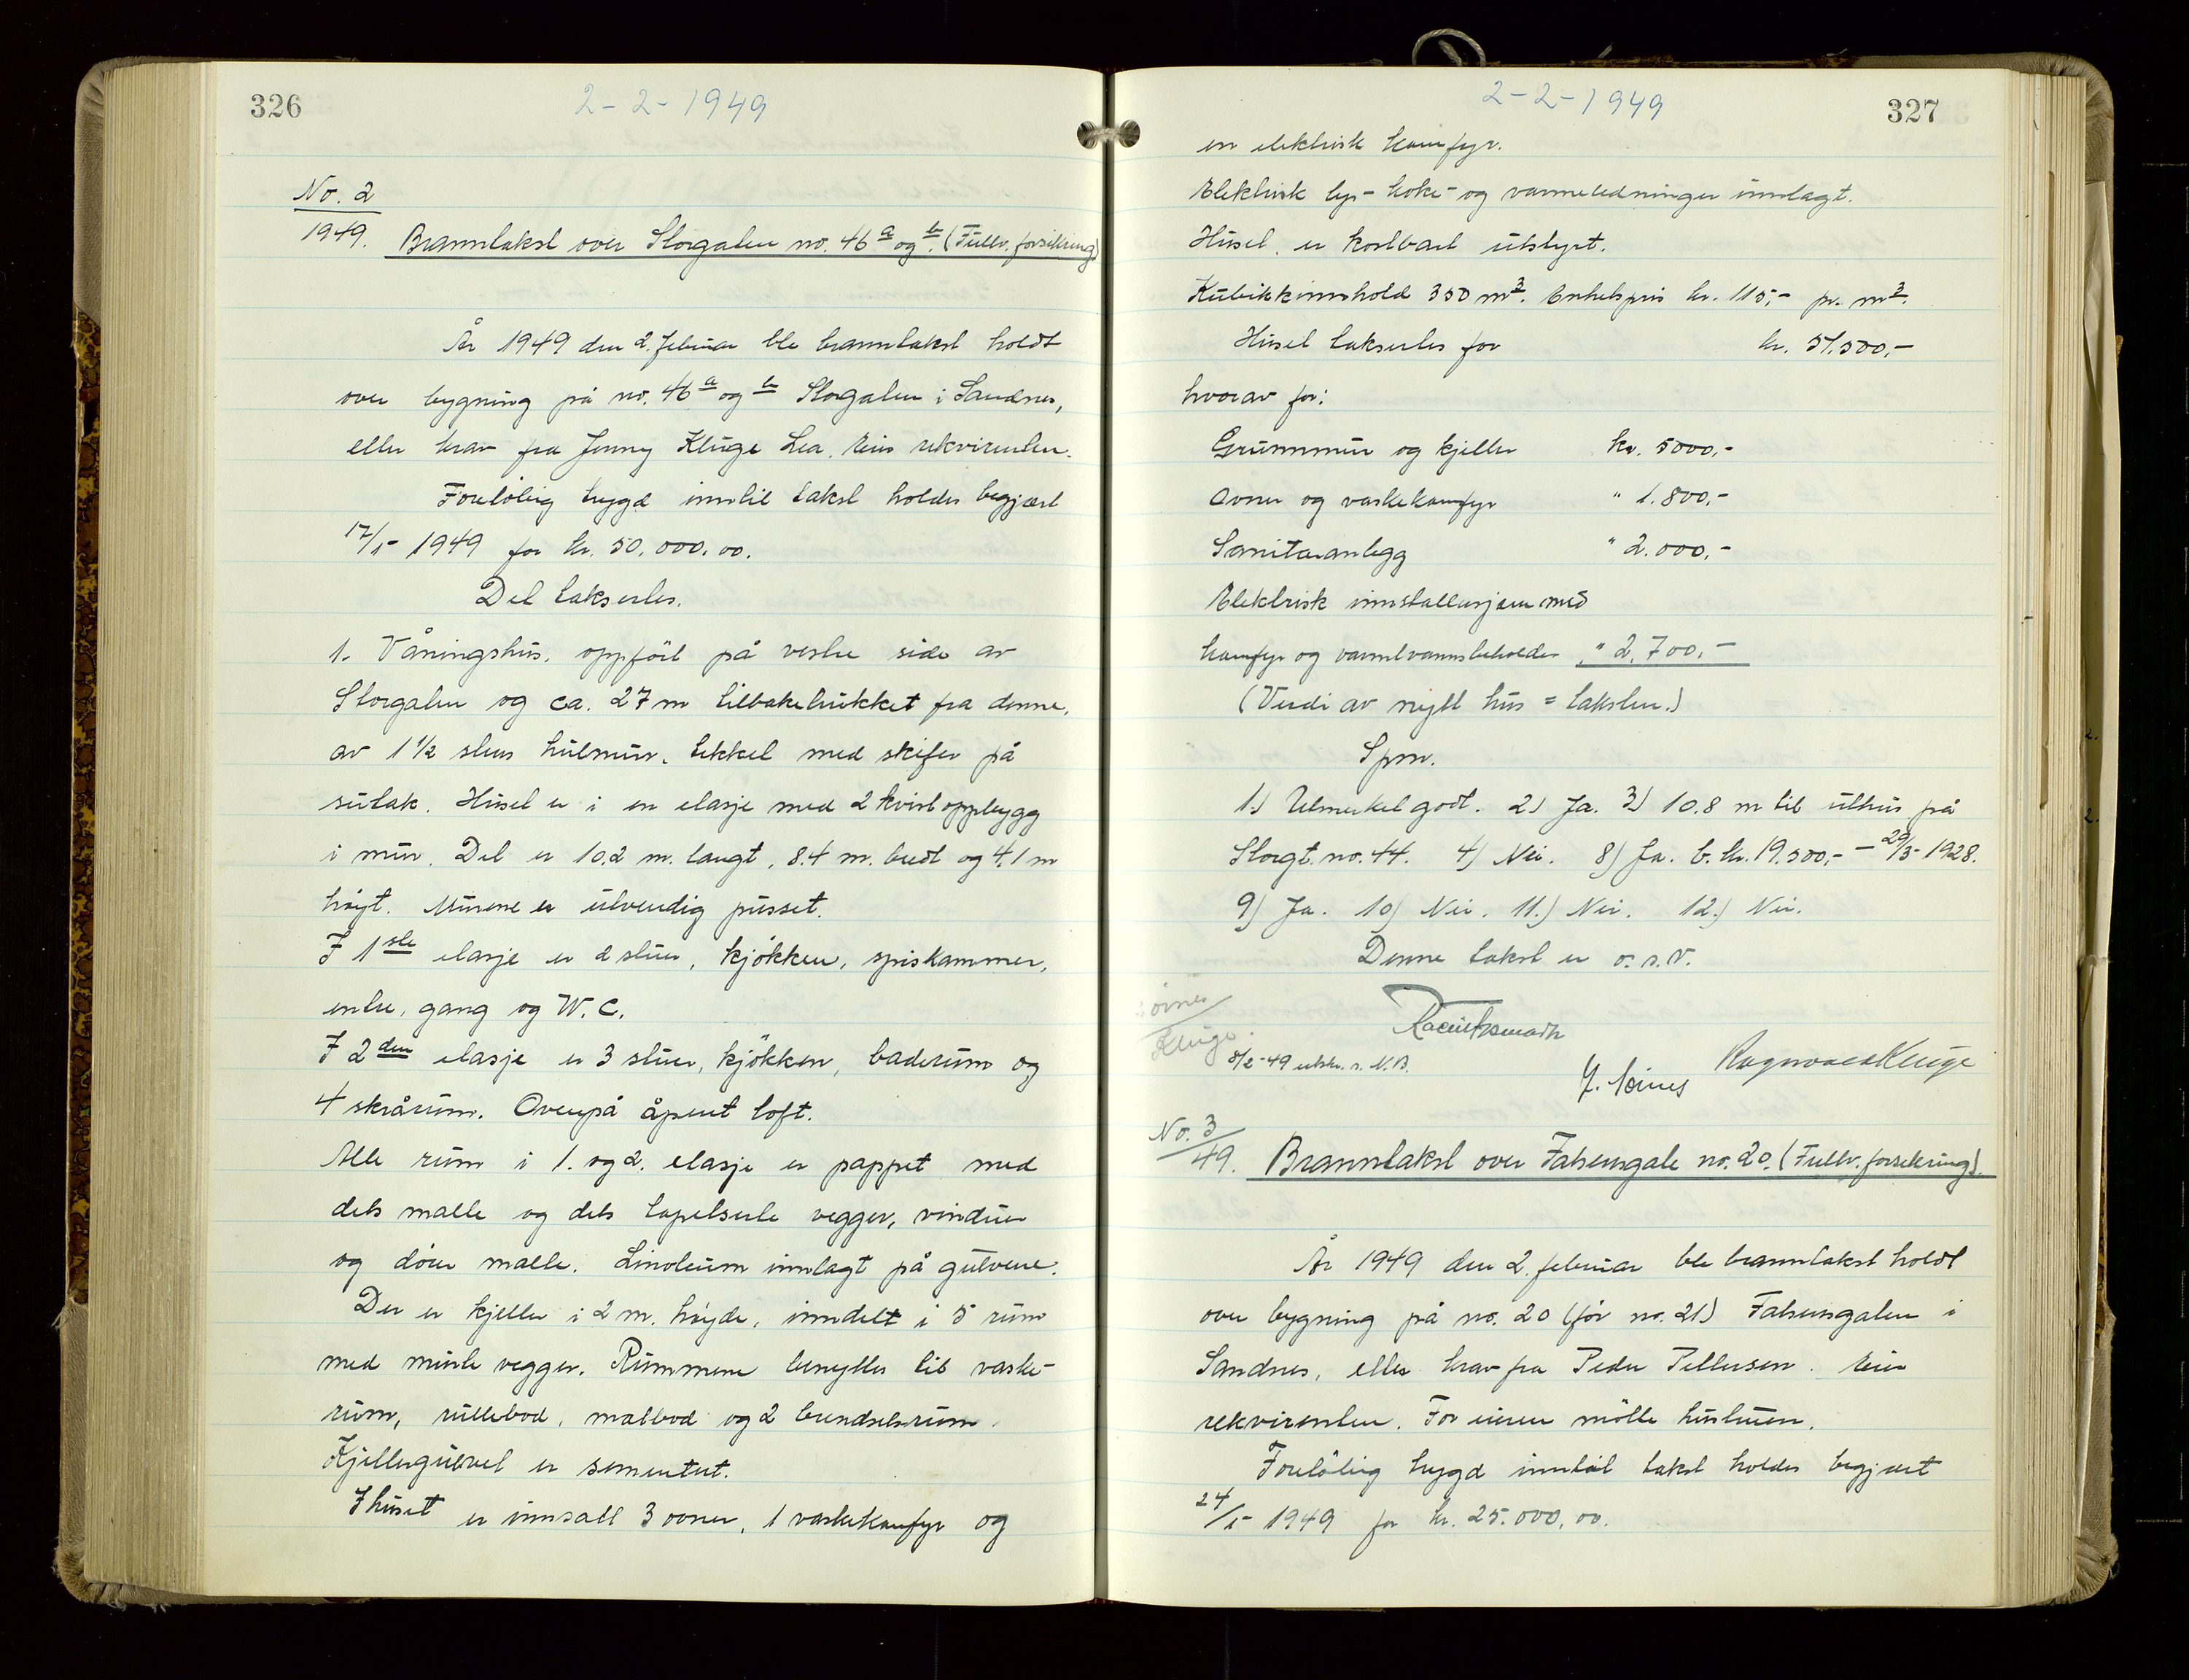 326
2-2-1949
No. 2
1949. Branntakst over Storgaten no. 46 a og b. (Fullv. forsikring)
År 1949 den 2. februar ble branntakst holdt
over bygning på no. 46 a og b Storgaten i Sandnes,
etter krav fra Jenny Kluge Lea. Eier rekvirenten.
Foreløbig trygd inntil takst holdes begjært
17/1- 1949 for kr. 50.000.00.
Det taksertes.
1. Våningshus, oppført på vestre side av
Storgaten og ca. 27 m tilbaketrukket fra denne,
av 1 1/2 stens hulmur, tekket med skifer på
sutak. Huset er i en etasje med 2 kvistoppbygg
i mur. Det er 10.2 m. langt, 8.4 m. bredt og 4.1 m
høyt. Murene er utvendig pusset.
I 1ste etasje er 2 stuer, kjøkken, spiskammer,
entre, gang og W.C.
I 2den etasje er 3 stuer, kjøkken, baderum og
4 skrårum. Ovenpå åpent loft.
Alle rum i 1. og 2. etasje er pappet med
dels malte og dels tapetserte vegger, vinduer
og dører malte. Linoleum innlagt på gulvene.
Der er kjeller i 2 m. høyde, inndelt i 5 rum
med murte vegger. Rummene benyttes til vaske-
rum, rullebod, matbod og 2 brendselsrum.
Kjellergulvet er sementert.
I huset er innsatt 3 ovner, 1 vaskekomfyr og
2-2-1949
327
en elektrisk komfyr.
Elektrisk lys- koke- og varmeledninger innlagt.
Huset er kostbart utstyrt.
Kubikkinnhold 350 m3. Enhetspris kr. 115,- pr. m3.
Huset taksertes for kr. 51.500,-
hvorav for:
Grunnmur og kjeller kr. 5000,-
Ovner og vaskekomfyr " 1.800,-
Sanitæranlegg " 2.000,-
Elektrisk innstallasjon med
komfyr og varmtvannsbeholder " 2.700,-
(Verdi av nytt hus = taksten.)
Spm.
1.) Utmerket godt. 2.) Ja. 3.) 10.8 m til uthus på
Storgt. no. 44. 4) Nei. 8) Ja. b. kr. 19.500,- - 29/5- 1928.
9) Ja. 10) Nei. 11.) Nei. 12.) Nei.
Denne takst er o.s.v.
Kluge
8/2-49 utskr. s. N.B.
Ragnvald Kluge
No. 3
49. Branntakst over Falsensgate no. 20. (Fullv. forsikring).
År 1949 den 2. februar ble branntakst holdt
over bygning på no. 20 (før no. 21) Falsensgaten i
Sandnes, etter krav fra Peder Pettersen. Eier
rekvirenten. For eieren møtte hustruen.
Foreløbig trygd inntil takst holdes begjært
24/1- 1949 for kr. 25.000,00.